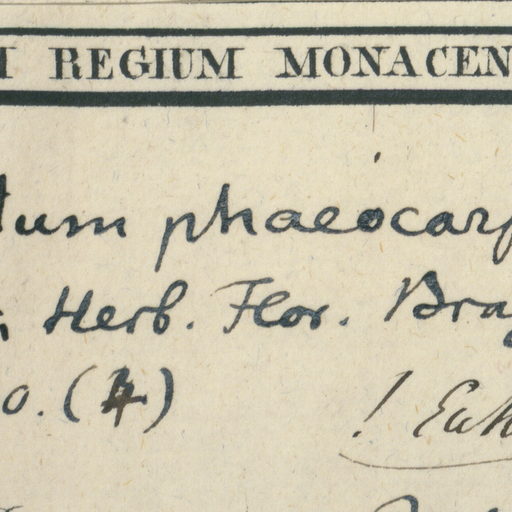 REGIUM MONACEN
tum phaeocarp
Herb. Flor. Bra
o. (4)
! Eich